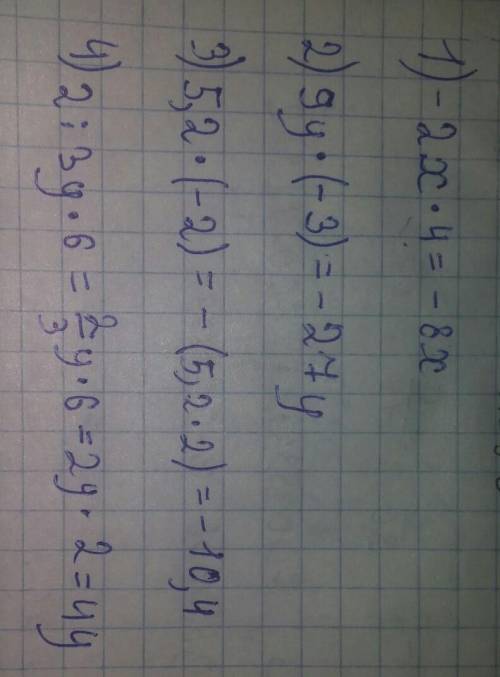 1) -2x·4=-8x
2) 9y·(-3)=-27y
3) 5,2·(-2)=-(5,2·2)=-10,4
4) 2:3y·6=2/3y·6=2y·2=4y